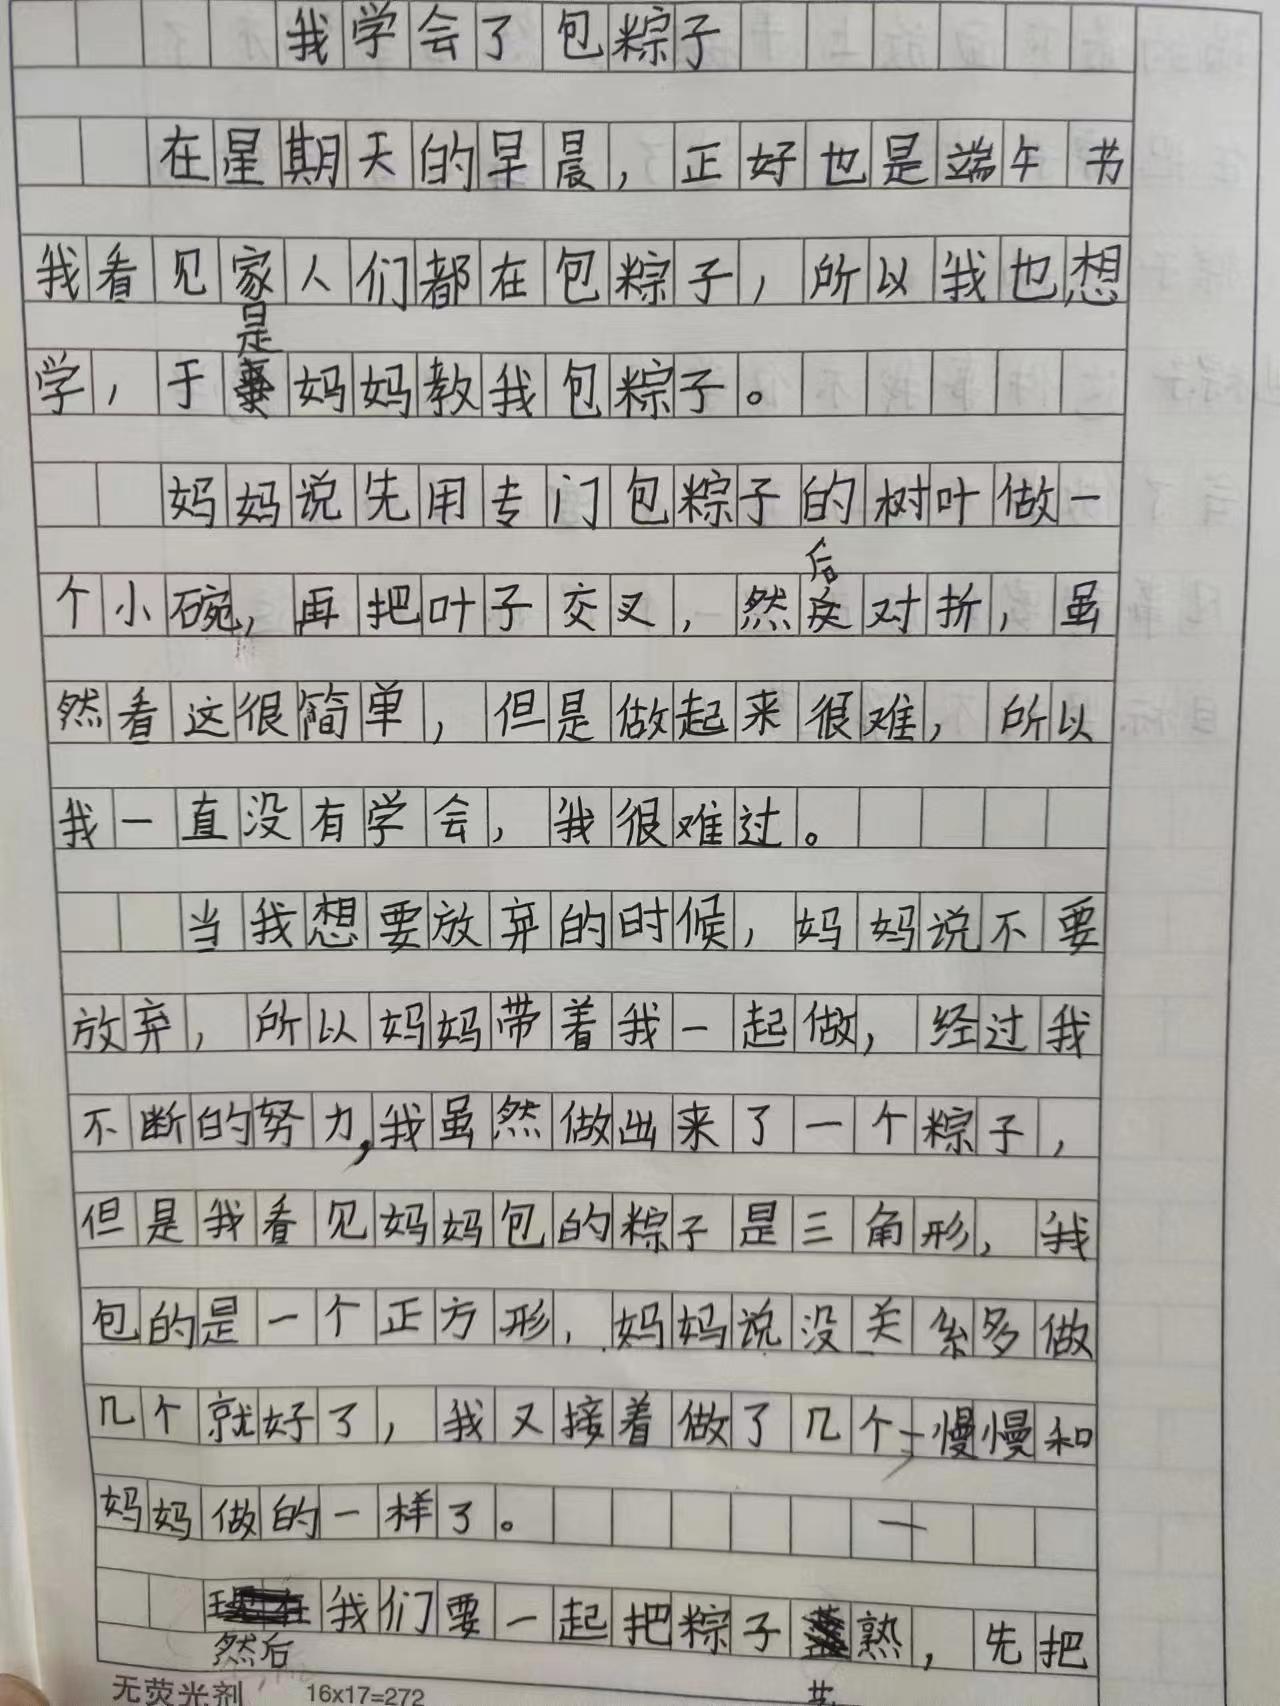 我学会了包粽子
在星期天的早晨，正好也是端午书
我看见家人们都在包粽子，所以我也想
学，于是妈妈教我包粽子。
妈妈说先用专门包粽子的树叶做一
个小碗，再把叶子交叉，然后对折，虽
然看这很简单，但是做起来很难，所以
我一直没有学会，我很难过。
当我想要放弃的时候，妈妈说不要
放弃，所以妈妈带着我一起做，经过我
不断的努力，我虽然做出来了一个粽子，
但是我看见妈妈包的粽子是三角形，我
包的是一个正方形，妈妈说没关系多做
几个就好了，我又接着做了几个，慢慢和
妈妈做的一样了。
然后我们要一起把粽子煮熟，先把
无荧光剂 16x17=272